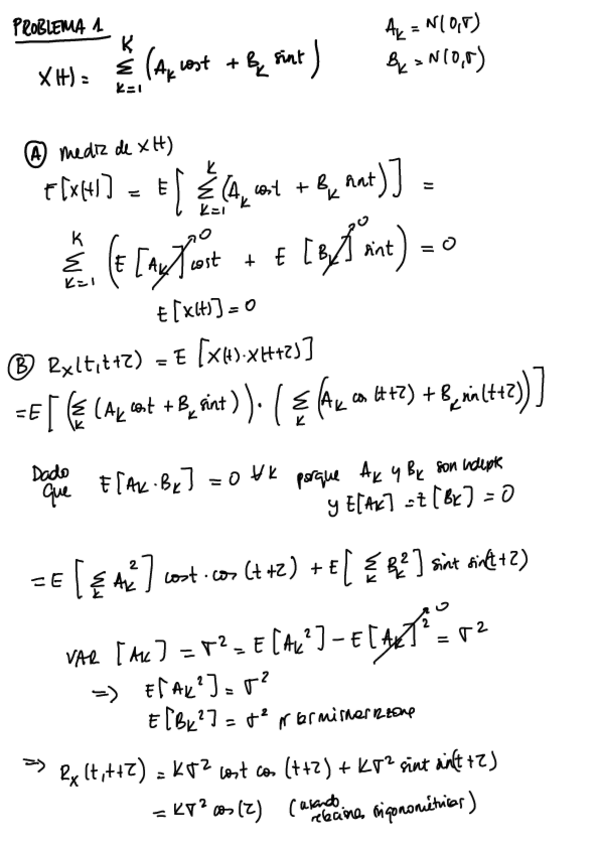 PROBLEMA 1
X(t) = Σ_{k=1}^{K} (A_k cos t + B_k sin t)
A_k = N(0,σ)
B_k = N(0,σ)
Ⓐ media de x(t)
E[X(t)] = E[ Σ_{k=1}^{K} (A_k cos t + B_k sin t) ] =
Σ_{k=1}^{K} (E[A_k]→0 cos t + E[B_k]→0 sin t) = 0
E[X(t)] = 0
Ⓑ R_x(t,t+τ) = E[X(t)·X(t+τ)]
= E[ (Σ_k (A_k cos t + B_k sin t)) · (Σ_k (A_k cos (t+τ) + B_k sin (t+τ))) ]
Dado que E[A_k·B_k] = 0 ∀k porque A_k y B_k son indept
y E[A_k] = E[B_k] = 0
= E[ Σ_k A_k² ] cos t · cos (t+τ) + E[ Σ_k B_k² ] sin t sin(t+τ)
VAR [A_k] = σ² = E[A_k²] − E[A_k]²→0 = σ²
⇒ E[A_k²] = σ²
E[B_k²] = σ² por misma razon
⇒ R_x(t,t+τ) = Kσ² cos t cos (t+τ) + Kσ² sin t sin(t+τ)
= Kσ² cos (τ) (usando relaciones trigonométricas)